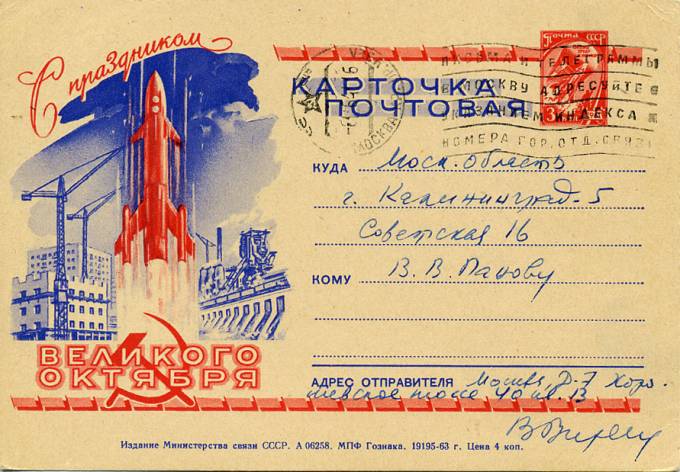 С праздником
ВЕЛИКОГО
ОКТЯБРЯ
Почта СССР
КАРТОЧКА
ПОЧТОВАЯ
МОСКВА
ПИСЬМА И ТЕЛЕГРАММЫ
В МОСКВУ АДРЕСУЙТЕ
УКАЗАНИЕМ ИНДЕКСА
НОМЕРА ГОР. ОТД. СВЯЗИ
КУДА Моск. область
г. Калининград-5
Советская 16
КОМУ В. В. Панову
АДРЕС ОТПРАВИТЕЛЯ Москва, Д-7 Хоро-
шевское шоссе 40 13
Издание Министерства связи СССР. А 06258. МПФ Гознака. 19195-63 г. Цена 4 коп.